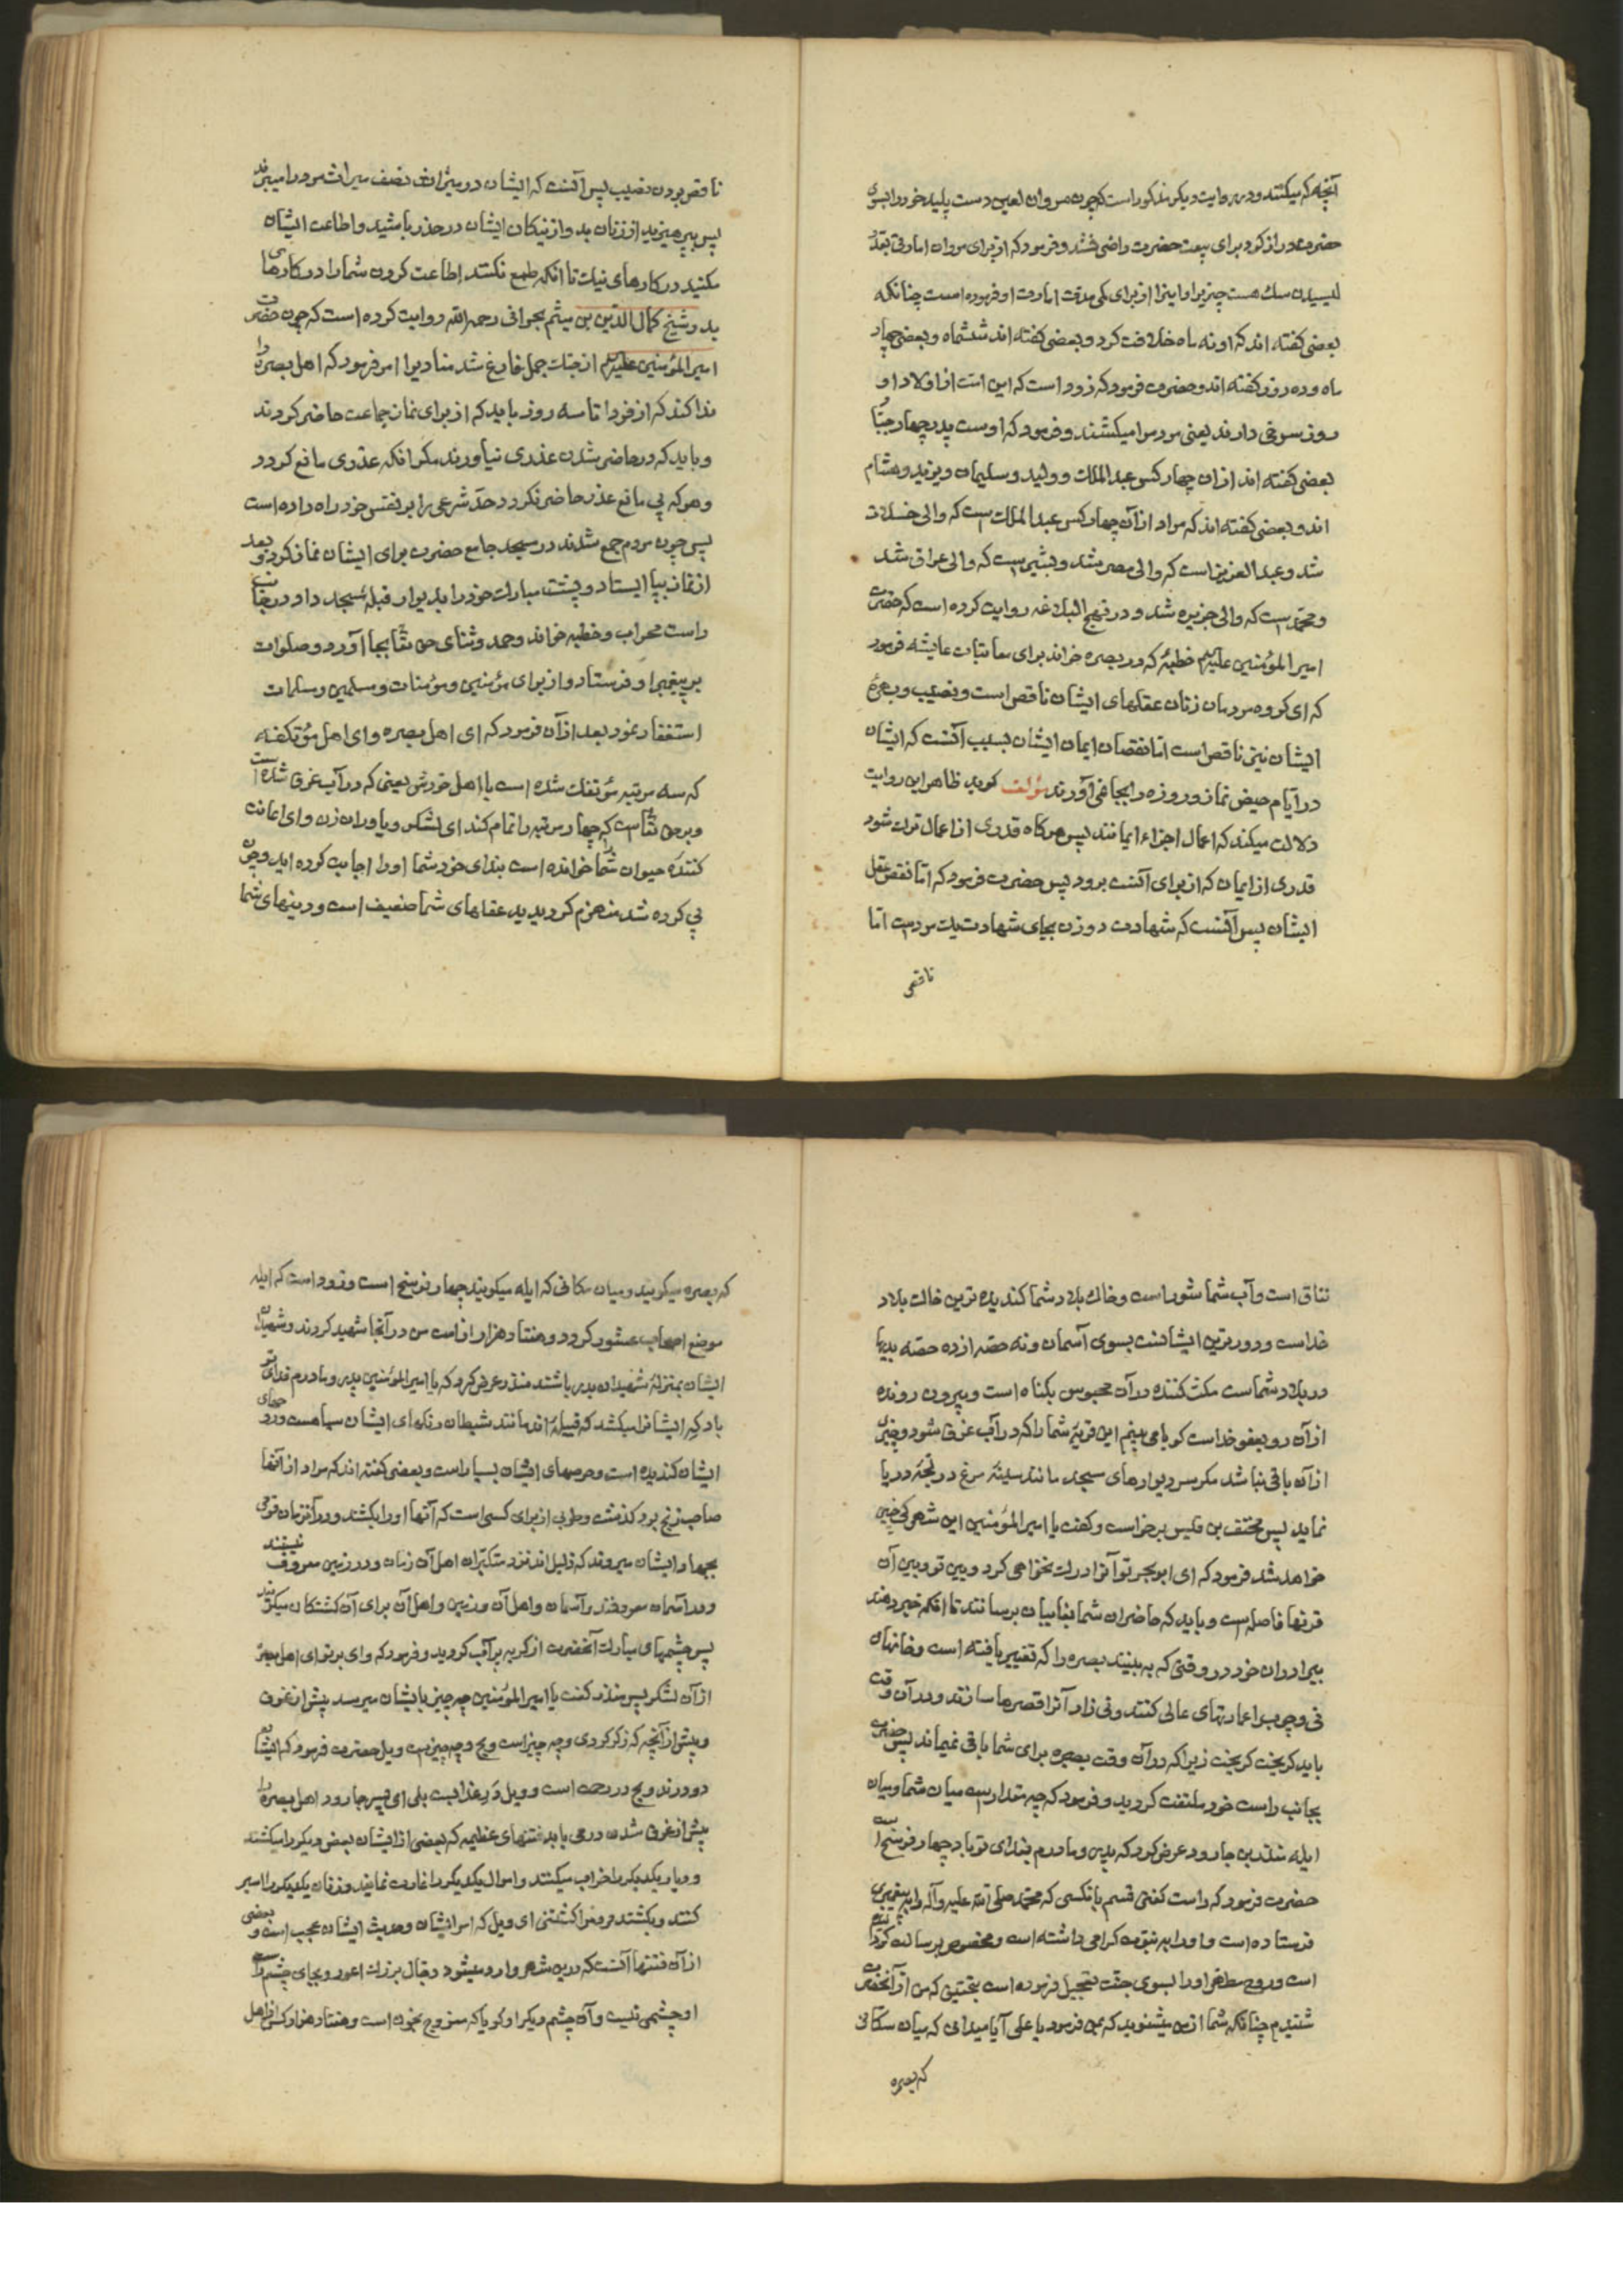 آنچه که میکنند و در روایت دیکر مذکور است که چون مروان لعین دست پلید خود را بسوی
حضرت دراز کرد برای بیعت حضرت راضی نشد و فرمود که از برای مروان امارتی بقدر
لیسیدن سک هست چنریرا و اینرا از برای کمی مدت امارت او فرموده است چنانکه
بعضی کفته اند که او نه ماه خلافت کرد و بعضی کفته اند ششماه و بعضی چهار
ماه و ده روز کفته اند و حضرت فرمود که زود است که این امت از اولاد او
روز سرخی دارند یعنی مردم را میکشند و فرمود که اوست پدر چهار
بعضی کفته اند از ان چهار کس عبد الملک و ولید و سلیمان و یزید و هشام
اند و بعضی کفته اند که مراد از آن چهار کس عبد الملک است که والی خلافت
شد و عبد العزیز است که والی مصر شد و بشیر است که والی عراق شد
و محمد است که والی جزیره شد و در نهج البلاغه روایت کرده است که حضرت
امیر المؤمنین علیه السلام خطبهٔ که در بصره خواند برای معاتبات عایشه فرمود
که ای کروه مردمان زنان عقلهای ایشان ناقص است و نصیب و بهرهٔ
ایشان نیز ناقص است اما نقصان ایمان ایشان بسبب آنست که ایشان
در ایام حیض نماز و روزه را بجا نمی آورند مؤلف کوید ظاهر این روایت
دلالت میکند که اعمال اجزاء ایمانند پس هر کاه قدری از اعمال ترک شود
قدری از ایمان که از برای آنست برود پس حضرت فرمود که اما نقص عقل
ایشان پس آنست که شهادت دو زن بجای شهادت یک مرد است اما
ناقص
ناقص بودن نصیب پس آنست که ایشان در میراث نصف میراث مرد را میبرند
پس بپرهیزید از زنان بد و از نیکان ایشان در حذر باشید و اطاعت ایشان
مکنید در کارهای نیک تا انکه طمع نکنند اطاعت کردن شما را در کارهای
بد و شیخ کمال الدین بن میثم بحرانی رحمه الله روایت کرده است که چون حضرت
امیر المؤمنین علیه السلام از جنک جمل فارغ شد منادیرا امر فرمود که اهل بصره را
ندا کند که از فردا تا سه روز باید که از برای نماز جماعت حاضر کردند
و باید که در حاضر شدن عذری نیاورند مکر انکه عذری مانع کردد
و هر که بی مانع عذر حاضر نکردد حد شرعی را بر نفس خود راه داده است
پس چون مردم جمع شدند در مسجد جامع حضرت برای ایشان نماز کرد و بعد
از نماز بپا ایستاد و پشت مبارک خود را بدیوار قبله مسجد داد در جانب
راست محراب و خطبه خواند و حمد و ثنای حق تعا بجا آورد و صلوات
بر پیغمبر او فرستاد و از برای مؤمنین و مؤمنات و مسلمین و مسلمات
استغفار نمود بعد از آن فرمود که ای اهل بصره و ای اهل مؤتفکه
که سه مرتبه مؤتفک شده است با اهل خودش یعنی که در آب غرق شده است
و بر حق تعا است که چهار مرتبه را تمام کند ای لشکر و یاوران زن و ای اعانت
کننده حیوان شما را خوانده است بندای خود شما او را اجابت کرده اید و چون
پی کرده شد منهزم کردیدید عقلهای شما ضعیف است و دینهای شما
نفاق است و آب شما شور است و خاک بلاد شما کندیده ترین خاک بلاد
خداست و دورترین ایشانست بسوی آسمان و نه حصه از ده حصه بدیها
در بلاد شماست مکث کننده در آن محبوس بکناه است و بیرون رونده
از آن رو بعفو خداست کویا می بینم این قریهٔ شما را که در آب غرق شود و چیزی
از آن باقی نباشد مکر سر دیوارهای مسجد مانند سینهٔ مرغ در لجهٔ دریا
نماید پس مختف بن قلیس برخواست و کفت یا امیر المؤمنین این شهر کی چنین
خواهد شد فرمود که ای ابو بحر تو آنرا درک نخواهی کرد و بین تو و بین آن
قرنها فاصله است و باید که حاضران شما بغایبان برسانند تا انکه خبر دهند
ببرادران خود در وقتی که به بینند بصره را که تغییر یافته است و خانهای
نی و چوب را عمارتهای عالی کنند و نی زار آنرا قصرها سازند و در آن وقت
باید کریخت کریخت زیرا که در آن وقت بصره برای شما باقی نمیماند پس حضرت
بجانب راست خود ملتفت کردید و فرمود که چه مقدار است میان شما و میان
ایله منذر بن جارود عرض کرد که پدر و مادرم فدای تو باد چهار فرسخ است
حضرت فرمود که راست کفتی قسم بانکسی که محمد صلی الله علیه و آله را به پیغمبری
فرستاده است و او را به نبوت کرامی داشته است و مخصوص برسالت کرده
است و روح مطهر او را بسوی جنت تعجیل فرموده است بتحقیق که من از آنحضرت
شنیدم چنانکه شما از من میشنوید که بمن فرمود یا علی آیا میدانی که میان مکانی
که بصره
که بصره میکویند و میان مکانی که ایله میکویند چهار فرسخ است و زود است که ایله
موضع اصحاب عشور کردد و هفتاد هزار از امت من در آنجا شهید کردند و شهیدان
ایشان بمنزلهٔ شهیدان بدر باشند منذر عرض کرد که یا امیر المؤمنین پدر و مادرم فدای تو
باد که ایشانرا میکشد که قبیلهٔ اند مانند شیطان رنکهای ایشان سیاهست و بوهای
ایشان کندیده است و حربهای ایشان بسیار است و بعضی کفته اند که مراد از آنها
صاحب زنج بود کذشت و طوبی از برای کسی است که آنها او را بکشند و در آنزمان قومی
بجهاد ایشان میروند که ذلیل اند نزد متکبران اهل آن زمان و در زمین معروف نیستند
و در آسمان معروفند و آسمان و اهل آن و زمین و اهل آن برای آن کشتکان میکریند
پس چشمهای مبارک آنحضرت از کریه پر آب کردید و فرمود که وای بر تو ای اهل بصره
از آن لشکر پس منذر کفت یا امیر المؤمنین چه چیز بایشان میرسد پیش از غرق
و پیش از آنچه که ذکر کردی و چه چیز است ویح و چه چیز است ویل حضرت فرمود که ایشان
دو درند ویح در رحمت است و ویل در عذابست بلی ای پسر جارود اهل بصره را
پیش از غرق شدن در می یابد فتنهای عظیمه که بعضی از ایشان بعض دیکر را میکشند
و دیار یکدیکر را خراب میکنند و اموال یکدیکر را غارت نمایند و زنان یکدیکر را اسیر
کنند و بکشند ای ویل که امر ایشان و حدیث ایشان عجب است و بعضی
از آن فتنها آنست که درین شهر وارد میشود دجال بزرک اعور و بجای چشم راست
او چشمی نیست و آن چشم دیکر او کویا که ممزوج بخون است و هفتاد هزار کس از اهل